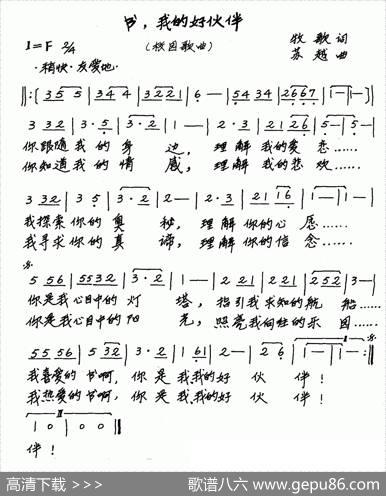 书，我的好伙伴
1=F 2/4 （校园歌曲） 牧歌 词
苏越 曲
·稍快·友爱地·
‖:( 3 5 5 | 3 4 4 | 3 2 2 1 | 6 — | 5 4 3 4 | 2 6 6 7 | 1 — | 1 — )|
3 3 2 | 3 · 5 | 3 · 2 | 1 — | 2 · 3 | 2 1 2 6 | 5 — | 5 — |
你跟随我的身边，理解我的爱恋……
你知道我的情感，理解我的悲欢……
3 3 2 | 3 5 | 3 · 2 | 2 — | 2 · 3 | 2 1 1 6 | 1 — | 1 — |
我探索你的奥秘，理解你的心愿……
我寻求你的真谛，理解你的信念……
5 5 6 | 5 5 3 2 | 3 · 2 | 1 — | 2 2 1 | 2 2 1 | 2 5 2 | 3 — |
你是我心目中的灯塔，指引我求知的航船……
你是我心目中的阳光，照亮我向往的乐园……
5 5 5 6 | 5 3 2 | 3 · 2 | 1 6 1 | 2 — | 2 6 | 1 — | 1 — :‖
我喜爱的书啊，你是我，我的好伙伴！
我热爱的书啊，你是我，我的好伙伴！
1 0 | 0 0 ‖
伴！
高清下载 >>> 歌谱八六 www.gepu86.com